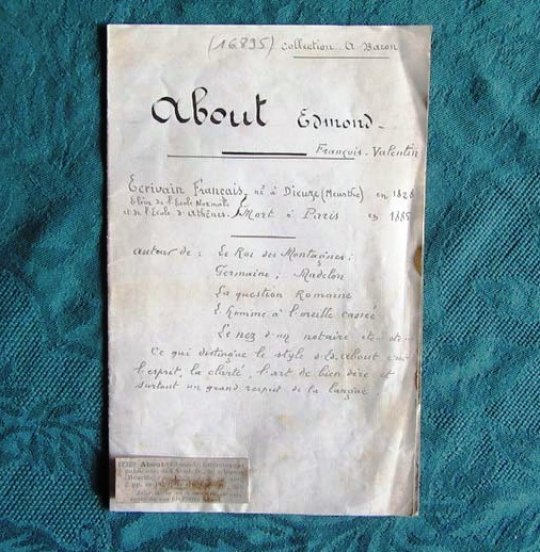 (16895) Collection A Baron
About Edmond_
François-Valentin
Ecrivain Français, né à Dieuze (Meurthe) en 1828
Elève de l'Ecole Normale
et de l'Ecole d'Athènes. Mort à Paris en 1885
auteur de : Le Roi des Montagnes ;
Germaine ; Madelon
La question Romaine
L'homme à l'oreille cassée
Le nez d'un notaire etc- etc-
Ce qui distingue le style d'Ed. About c'est
l'esprit, la clarté, l'art de bien dire et
surtout un grand respect de la langue
About